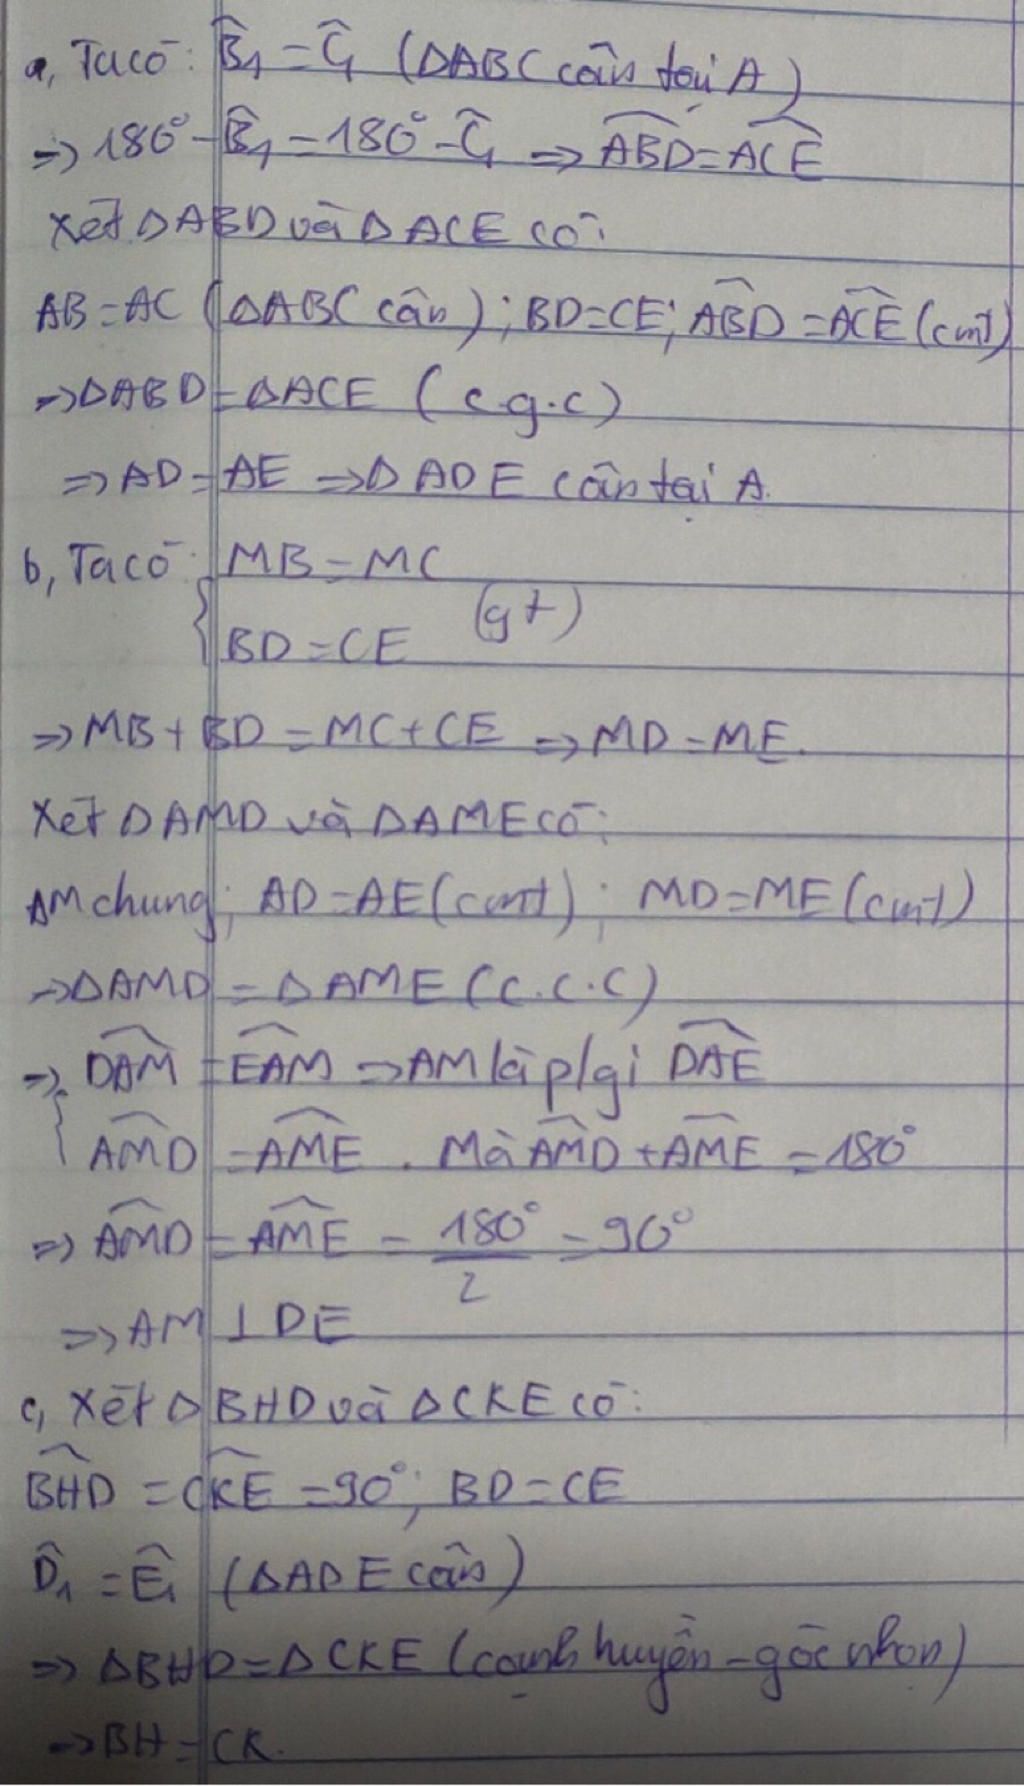 a, Ta có: B̂₁ = Ĉ₁ (ΔABC cân tại A)
=> 180° - B̂₁ = 180° - Ĉ₁ => ABD̂ = ACÊ
Xét ΔABD và ΔACE có:
AB = AC (ΔABC cân); BD = CE; ABD̂ = ACÊ (cmt)
=> ΔABD = ΔACE (c.g.c)
=> AD = AE => ΔADE cân tại A.
b, Ta có: { MB = MC
BD = CE (gt)
=> MB + BD = MC + CE => MD = ME.
Xét ΔAMD và ΔAME có:
AM chung; AD = AE (cmt); MD = ME (cmt)
=> ΔAMD = ΔAME (c.c.c)
=> { DAM̂ = EAM̂ => AM là p/gi DAÊ
AMD̂ = AMÊ. Mà AMD̂ + AMÊ = 180°
=> AMD̂ = AMÊ = 180°/2 = 90°
=> AM ⊥ DE
c, Xét ΔBHD và ΔCKE có:
BHD̂ = CKÊ = 90°; BD = CE
D̂₁ = Ê₁ (ΔADE cân)
=> ΔBHD = ΔCKE (cạnh huyền - góc nhọn)
=> BH = CK.